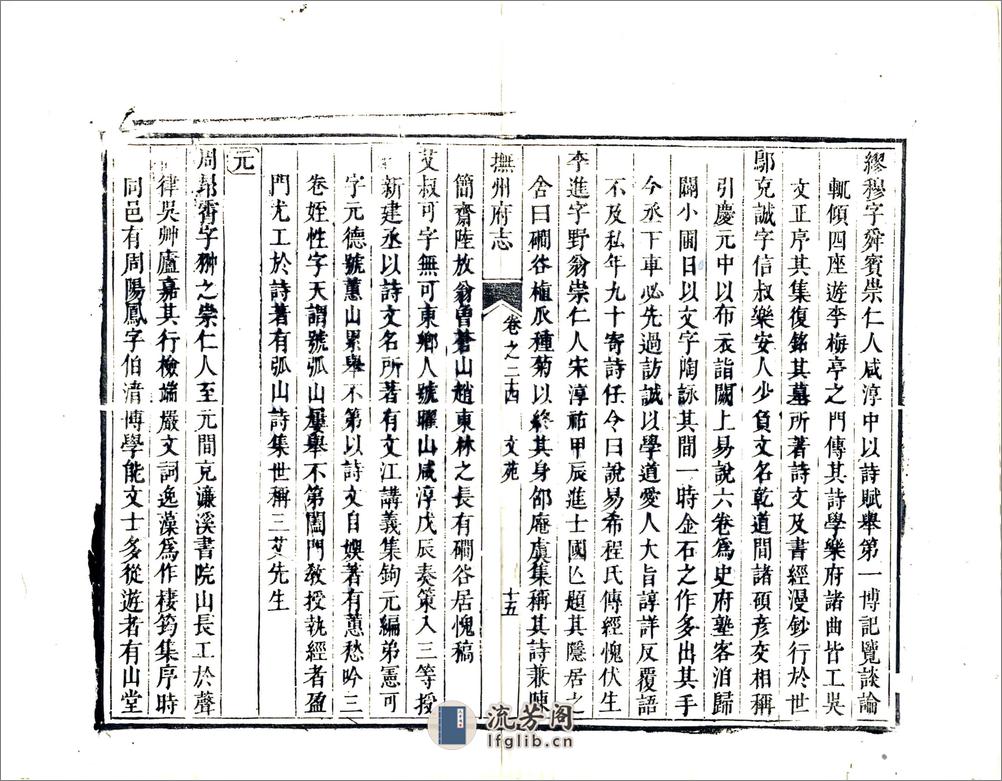 繆穆字舜賓崇仁人咸淳中以詩賦舉第一博記覽談論
輒傾四座遊李梅亭之門傳其詩學樂府諸曲皆工吳
文正序其集復銘其墓所著詩文及書經漫鈔行於世
鄔克誠字信叔樂安人少負文名乾道間諸碩彥交相稱
引慶元中以布衣詣闕上易說六卷爲史府塾客洎歸
闢小圃日以文字陶詠其間一時金石之作多出其手
今丞下車必先過訪誠以學道愛人大旨諄詳反覆語
不及私年九十寄詩任令曰說易希程氏傳經愧伏生
李進字野翁崇仁人宋淳祐甲辰進士國亾題其隱居之
舍曰磵谷植瓜種菊以終其身邵庵虞集稱其詩兼陳
撫州府志
卷之二十四
文苑
十五
簡齋陸放翁曾蒼山趙東林之長有磵谷居愧稿
艾叔可字無可東鄉人號臞山咸淳戊辰奏策入三等授
新建丞以詩文名所著有文江講義集鉤元編弟憲可
字元德號蕙山累舉不第以詩文自娛著有蕙愁吟三
卷姪性字天謂號弧山屢舉不第闔門敎授執經者盈
門尤工於詩著有弧山詩集世稱三艾先生
元
周昻霄字翀之崇仁人至元間克濂溪書院山長工於聲
律吳艸廬嘉其行檢端嚴文詞逸藻爲作棲筠集序時
同邑有周陽鳳字伯清博學能文士多從遊者有山堂
流芳阁
lfglib.cn